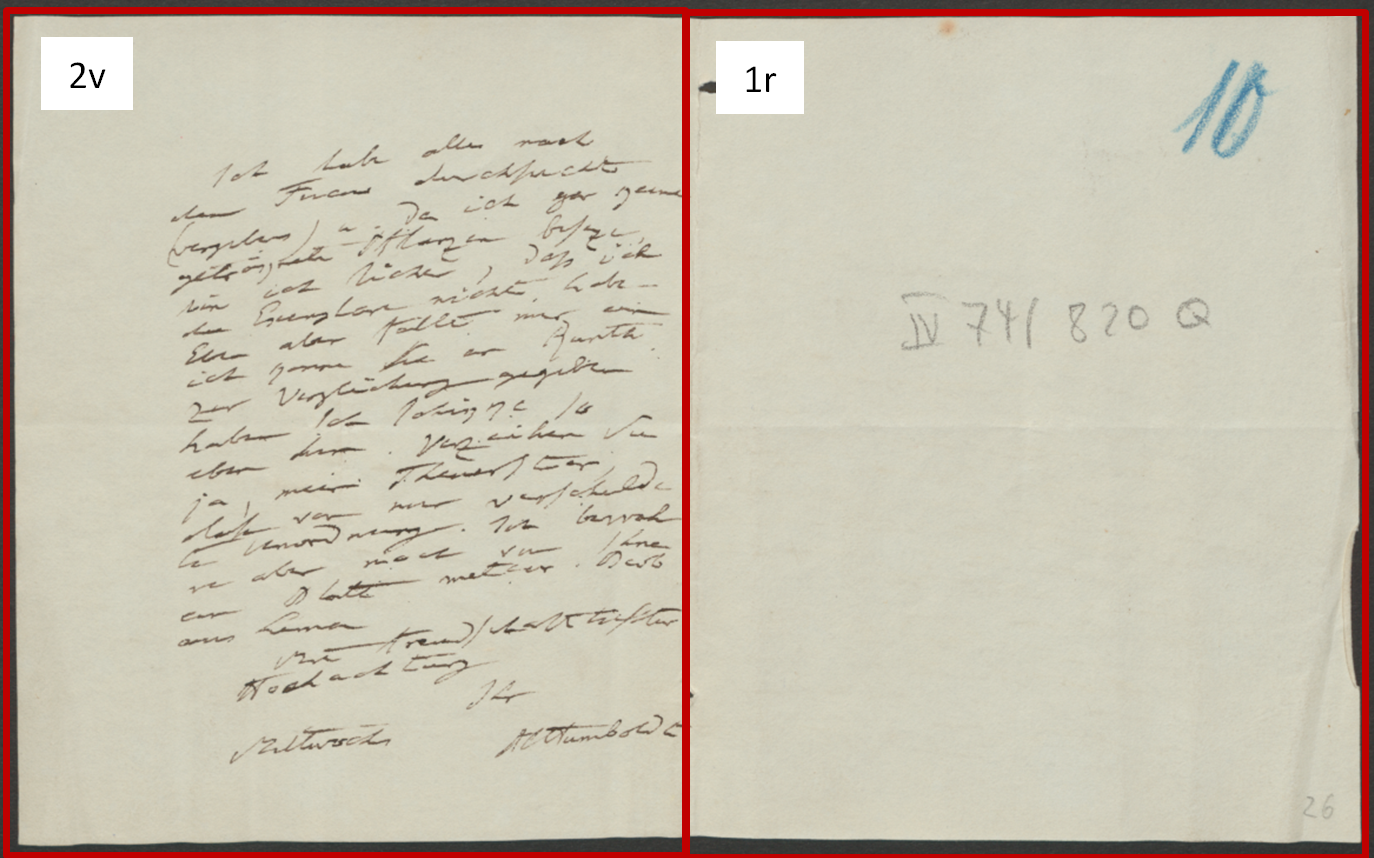 2v
Ich habe alles nach
dem Fucus durchsucht
(vergebens) u. Da ich gar keine
getroknete Pflanzen besize,
bin ich sicher, daß ich
die Exemplare nicht habe –
Eben aber fällt mir ein
ich könne Sie an Kunth
zur Vergleichung gegeben
haben Ich schikke so
eben hin. Verzeihen Sie
ja, mein Theuerster
diese von mir verschulde
te Unordnung. Ich bewah
re aber nicht von Ihnen
ein Blatt weiter. Das
aus Lima
Mit freundschaftlichster
Hochachtung
Ihr
Mittwochs AlHumboldt
1r
10
IV 74/ 820 Q
26